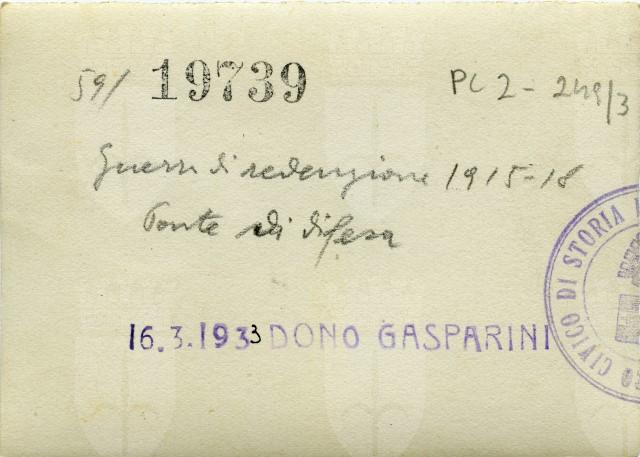 59/ 19739 PC 2 - 249/3
Guerra di redenzione 1915-18
Ponte di difesa
16.3.1933 DONO GASPARINI
CO CIVICO DI STORIA